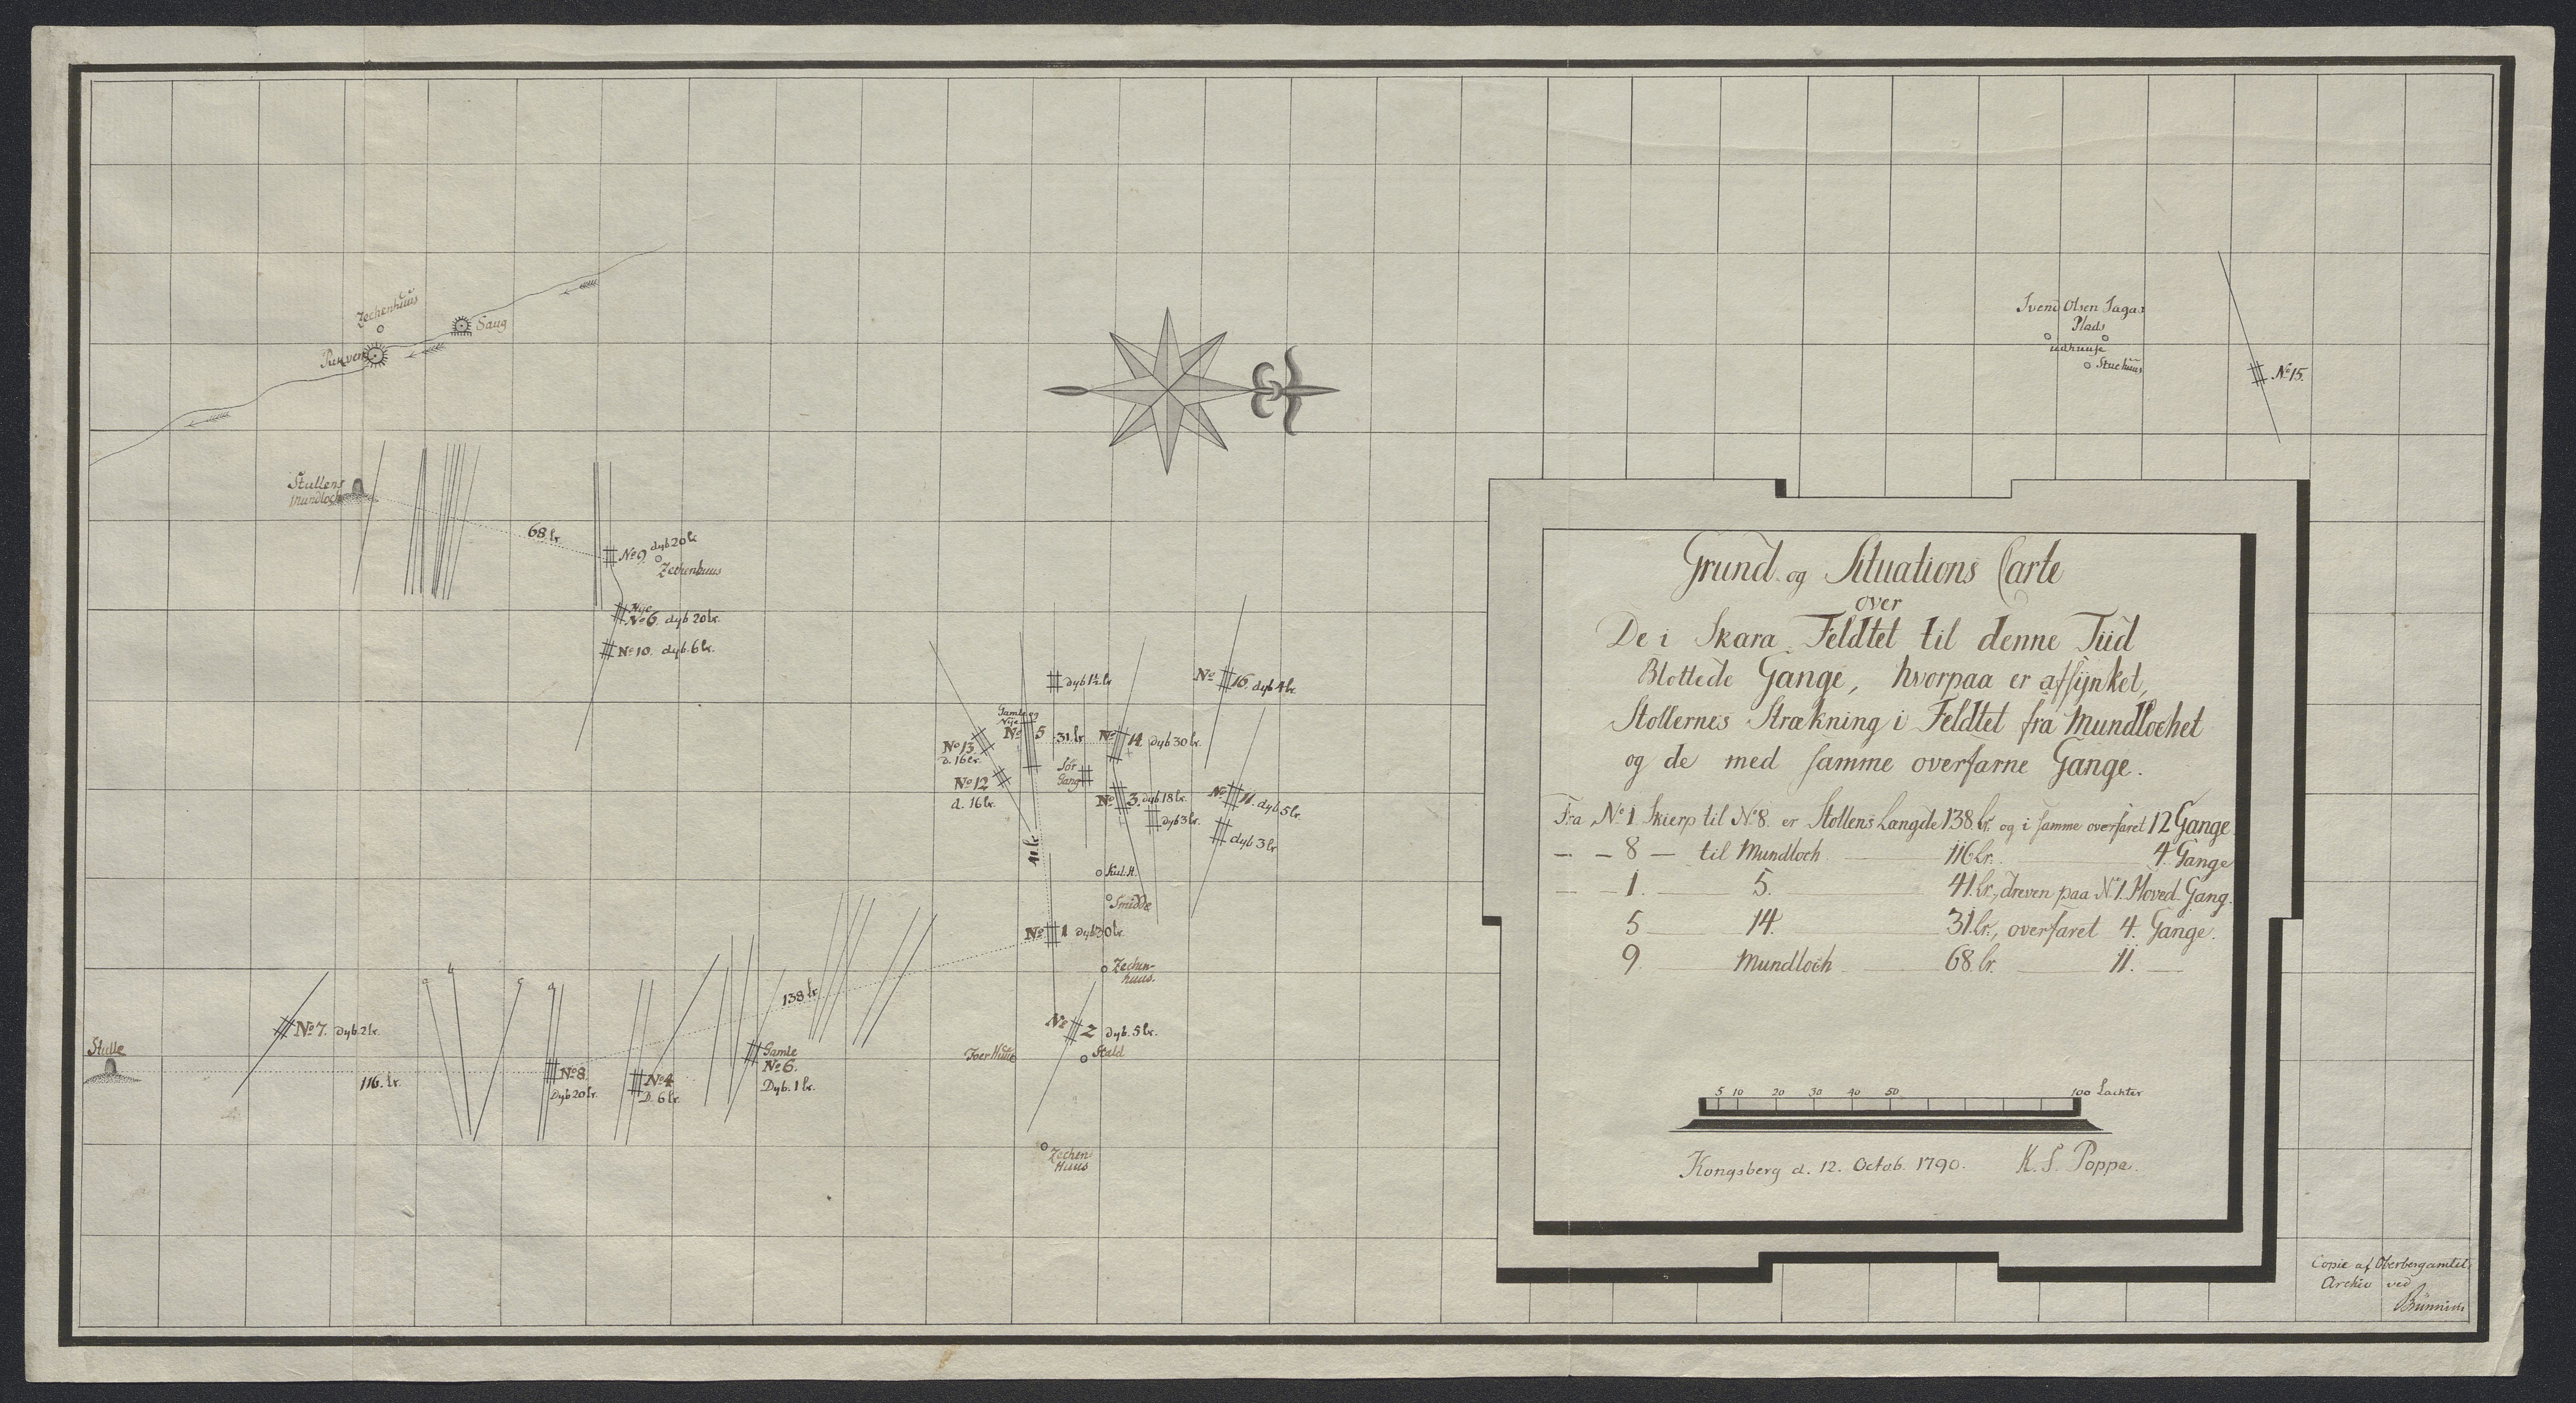 Zechenhuus
Saug
Svend Olsen Sagas
Plads
udhuuse
Stuehuus
No 15.
Stullens
Mundloch
68 lr.
No 9. dyb 20 lr
Zechenhuus
Nye
No 6. dyb 20 lr.
No 10. dyb. 6 lr.
dyb 1½ lr
No 16. dyb 4 lr.
Gamle og
Nye
No 5
31 lr
No 14 dyb 30 lr.
No 13.
d. 16 lr.
Sör
Gang
No 12
d. 16 lr.
No 3. dyb 18 lr.
dyb 3 lr.
No 11. dyb 5 lr.
dyb 3 lr
41 lr
Kul. H.
Smidde
No 1 dyb 30 lr.
Zechen-
huus.
138 lr.
No 2 dyb. 5 lr.
Stald
No 7. dyb. 2 lr.
Stulle
116. lr.
No 8.
Dyb 20 lr.
No 4
D. 6 lr
Gamle
No 6.
Dyb. 1 lr.
Zechen
Huus
Grund- og Situations Carte
over
De i Skara Feldtet til denne Tiid
Blottede Gange, hvorpaa er afsynket,
Stollernes Strækning i Feldtet fra Mundlochet
og de med samme overfarne Gange.
Fra No 1 Skierp til No 8. er Stollens Længde 138. lr. og i samme overfaret 12 Gange
— — 8 — til Mundloch — 116 lr. — 4. Gange
— — 1. — 5. — 41. lr., dreven paa No 1. Hoved Gang.
5 — 14. — 31 lr., overfaret 4. Gange.
9. — Mundloch — 68. lr. — 11. —
5 10 20 30 40 50 100 Lachter
Kongsberg d. 12. Octob. 1790. K. S. Poppe.
Copie af Oberbergamtets
Archiv ved
Brünnich